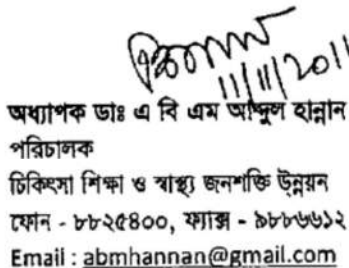 11/11/2011
অধ্যাপক ডাঃ এ বি এম আব্দুল হান্নান
পরিচালক
চিকিৎসা শিক্ষা ও স্বাস্থ্য জনশক্তি উন্নয়ন
ফোন - ৮৮২৫৪০০, ফ্যাক্স - ৯৮৮৬৬১২
Email : abmhannan@gmail.com